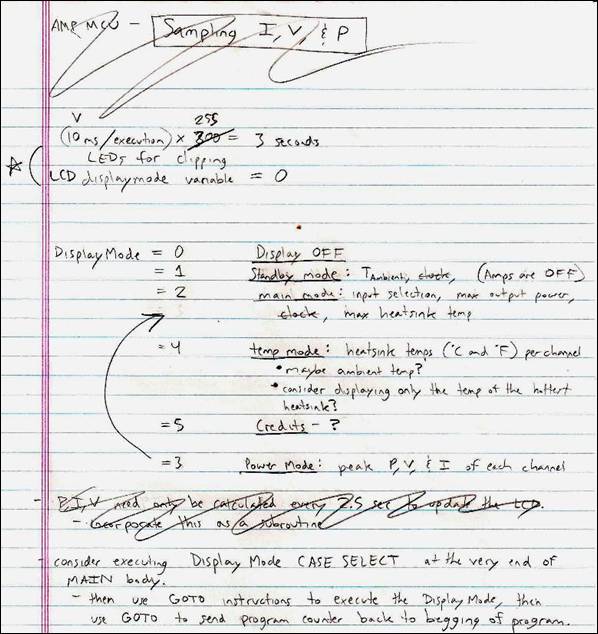 AMP MCU - Sampling I, V, & P
V 255
(10ms/execution) x 300 = 3 seconds
LEDs for clipping
LCD displaymode variable = 0
DisplayMode = 0 Display OFF
= 1 Standby mode: TAmbient, clock, (Amps are OFF)
= 2 main mode: input selection, max output power,
clock, max heatsink temp
= 4 temp mode: heatsink temps (°C and °F) per channel
• maybe ambient temp?
• consider displaying only the temp of the hottest
heatsink?
= 5 Credits - ?
= 3 Power Mode: peak P, V, & I of each channel
- P, I, V need only be calculated every 2.5 sec to update the LCD.
- incorporate this as a subroutine
- consider executing Display Mode CASE SELECT at the very end of
MAIN body.
- then use GOTO instructions to execute the DisplayMode, then
use GOTO to send program counter back to begging of program.